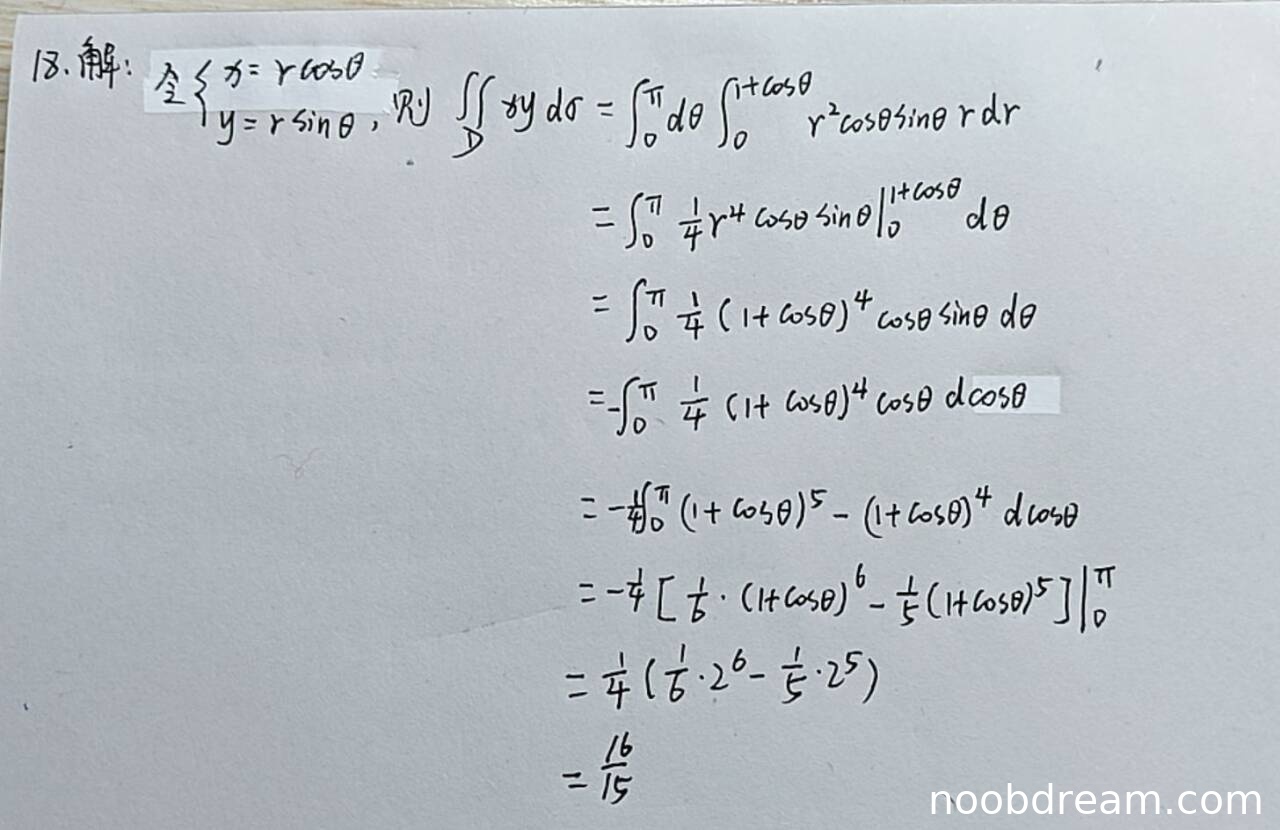 18.解: 令{x=rcosθ y=rsinθ, 则 ∬_D xydσ = ∫_0^π dθ ∫_0^{1+cosθ} r²cosθsinθ rdr
= ∫_0^π 1/4 r⁴ cosθ sinθ |_0^{1+cosθ} dθ
= ∫_0^π 1/4 (1+cosθ)⁴ cosθ sinθ dθ
= -∫_0^π 1/4 (1+cosθ)⁴ cosθ dcosθ
= -1/4 ∫_0^π (1+cosθ)⁵ - (1+cosθ)⁴ dcosθ
= -1/4 [1/6 · (1+cosθ)⁶ - 1/5 (1+cosθ)⁵] |_0^π
= 1/4 (1/6 · 2⁶ - 1/5 · 2⁵)
= 16/15
noobdream.com